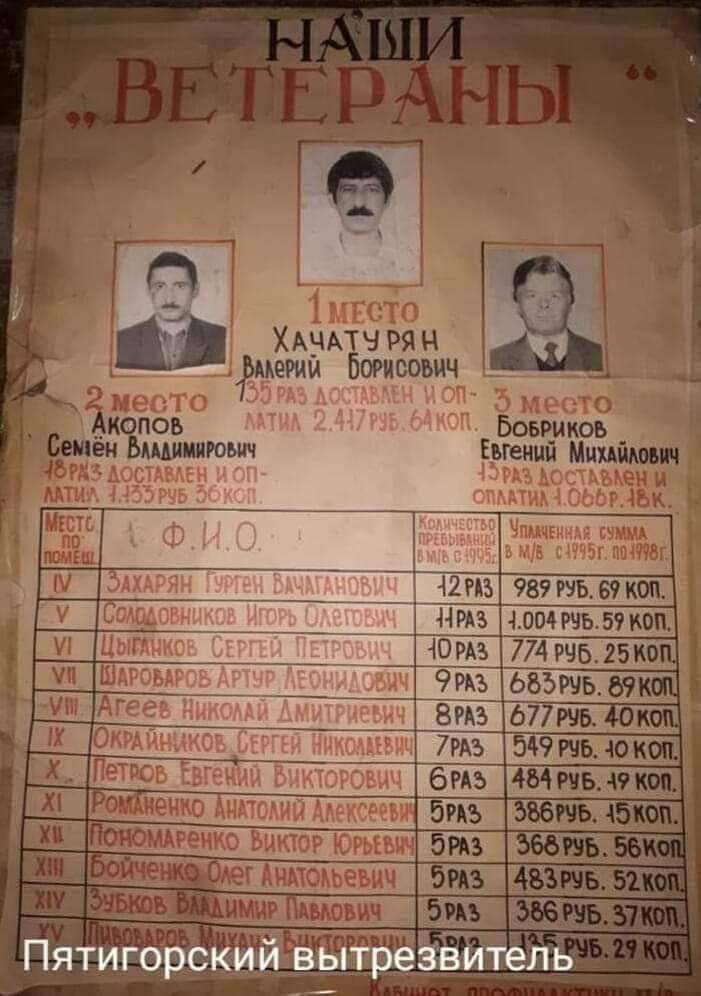 НАШИ
„ВЕТЕРАНЫ“
1 место
ХАЧАТУРЯН
ВАЛЕРИЙ БОРИСОВИЧ
135 РАЗ ДОСТАВЛЕН И ОП-
ЛАТИЛ 2.417 РУБ. 64 КОП.
2 место
АКОПОВ
СЕМЁН ВЛАДИМИРОВИЧ
18 РАЗ ДОСТАВЛЕН И ОП-
ЛАТИЛ 1.133 РУБ 36 КОП.
3 место
БОБРИКОВ
ЕВГЕНИЙ МИХАЙЛОВИЧ
13 РАЗ ДОСТАВЛЕН И
ОПЛАТИЛ 1.066 Р. 18 К.
МЕСТО ПО ПОМЕЩ. Ф.И.О. КОЛИЧЕСТВО ПРЕБЫВАНИЙ В М/В С 1995г. УПЛАЧЕННАЯ СУММА В М/В С 1995г. ПО 1998г.
IV ЗАХАРЯН ГУРГЕН ВАЧАГАНОВИЧ 12 РАЗ 989 РУБ. 69 КОП.
V СОЛОДОВНИКОВ ИГОРЬ ОЛЕГОВИЧ 11 РАЗ 1.004 РУБ. 59 КОП.
VI ЦЫГАНКОВ СЕРГЕЙ ПЕТРОВИЧ 10 РАЗ 774 РУБ. 25 КОП.
VII ШАРОВАРОВ АРТУР ЛЕОНИДОВИЧ 9 РАЗ 683 РУБ. 89 КОП.
VIII АГЕЕВ НИКОЛАЙ ДМИТРИЕВИЧ 8 РАЗ 677 РУБ. 40 КОП.
IX ОКРАЙНИКОВ СЕРГЕЙ НИКОЛАЕВИЧ 7 РАЗ 549 РУБ. 10 КОП.
X ПЕТРОВ ЕВГЕНИЙ ВИКТОРОВИЧ 6 РАЗ 484 РУБ. 19 КОП.
XI РОМАНЕНКО АНАТОЛИЙ АЛЕКСЕЕВИЧ 5 РАЗ 386 РУБ. 15 КОП.
XII ПОНОМАРЕНКО ВИКТОР ЮРЬЕВИЧ 5 РАЗ 368 РУБ. 56 КОП
XIII БОЙЧЕНКО ОЛЕГ АНАТОЛЬЕВИЧ 5 РАЗ 483 РУБ. 52 КОП.
XIV ЗУБКОВ ВЛАДИМИР ПАВЛОВИЧ 5 РАЗ 386 РУБ. 37 КОП.
XV ПИВОВАРОВ МИХАИЛ ВИКТОРОВИЧ 5 РАЗ 135 РУБ. 29 КОП.
Пятигорский вытрезвитель
КАБИНЕТ ПРОФИЛАКТИКИ